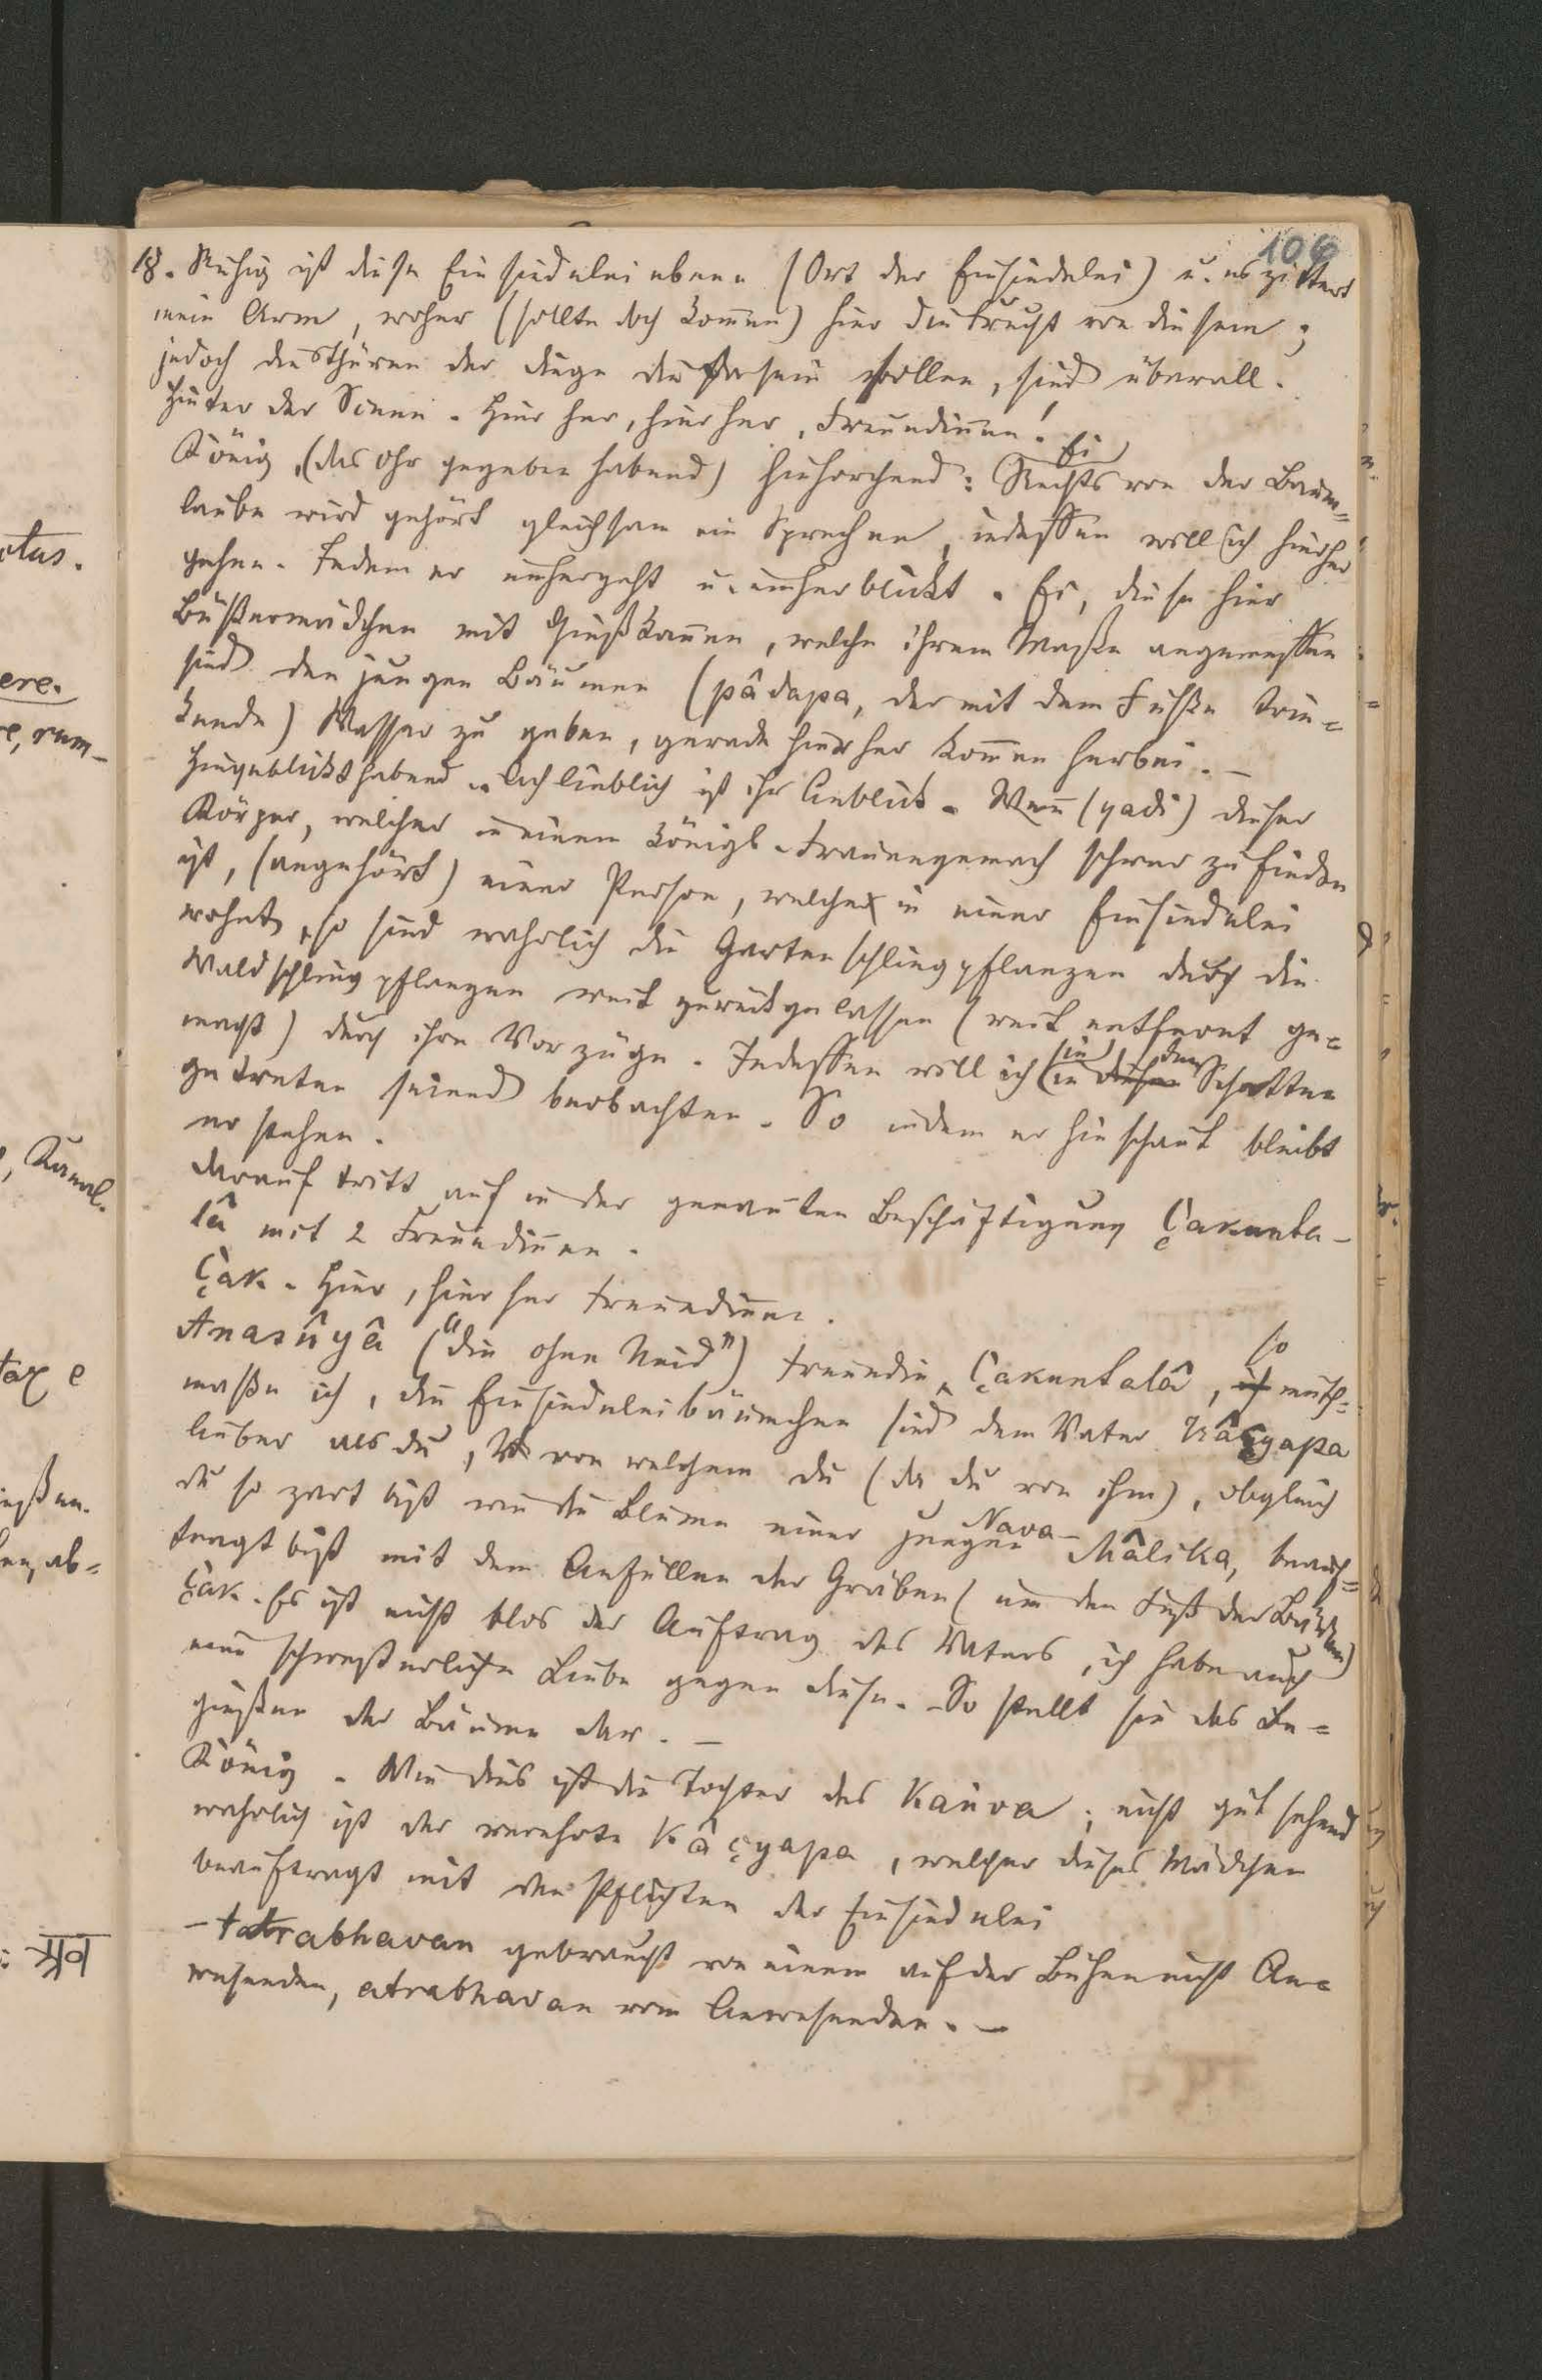 106
18. Ruhig ist diese Einsiedelei eben (Ort der Einsiedelei) u. es zittert
mein Arm, woher (sollte doch kom̄en) hier die Frucht von diesem;
jedoch die Thüren der Dinge die da sein sollen, sind überall.
Hinter der Scene. Hier her, hier her, Freundin̄en!
König, (das Ohr gegeben habend) hinhorchend: Ei Rechts von der Baum=
laube wird gehört gleichsam ein Sprechen, indessen will ich hierher
gehen. Indem er umhergeht u. umherblickt. Ei, diese hier
Büßermädchen mit Gießkan̄en, welche ihrem Maße angemessen
sind den jungen Bäumen (pâdapa, der mit dem Fuße trin=
kende) Wasser zu geben, gerade hierher kom̄en herbei. –
Hingeblickt habend. Ach lieblich ist ihr Anblick. Wen̄ (yadi) dieser
Körper, welcher in einem königl. Frauengemach schwer zu finden
ist, (angehört) einer Person, welche in einer Einsiedelei
wohnt, so sind wahrlich die Gartenschlingpflanzen durch die
Waldschlingpflanzen weit zurückgelassen (weit entfernt ge=
macht) durch ihre Vorzüge. Indessen will ich sie in den Schatten
getreten seiend beobachten. So indem er hinschaut bleibt
er stehen.
Darauf tritt auf in der genan̄ten Beschäftigung Çakunta-
lâ mit 2 Freundin̄en.
Çak. Hier, hier her Freundin̄en.
Anasûyâ ("die ohne Neid") Freundin, Çakuntalâ, so muth=
maße ich, die Einsiedeleibäumchen sind dem Vater Kâçyapa
lieber als du, von welchem du (da du von ihm), obgleich
du so zart bist wie die Blume einer jungen Nava-Mâlika, beauf=
tragt bist mit dem Anfüllen der Gräben (um den Fuß der Bäume)
Çak. Es ist nicht blos der Auftrag des Vaters, ich habe auch
eine schwesterliche Liebe gegen diese. So stellt sie das Be=
gießen der Bäume dar. –
König. Wie dies ist die Tochter des Kanva; nicht gut sehend
wahrlich ist der verehrte Kâçyapa, welcher dieses Mädchen
beauftragt mit den Pflichten der Einsiedelei
– tatrabhavan gebraucht von einem auf der Bühne nicht An=
wesenden, atrabhavan vom Anwesenden. –